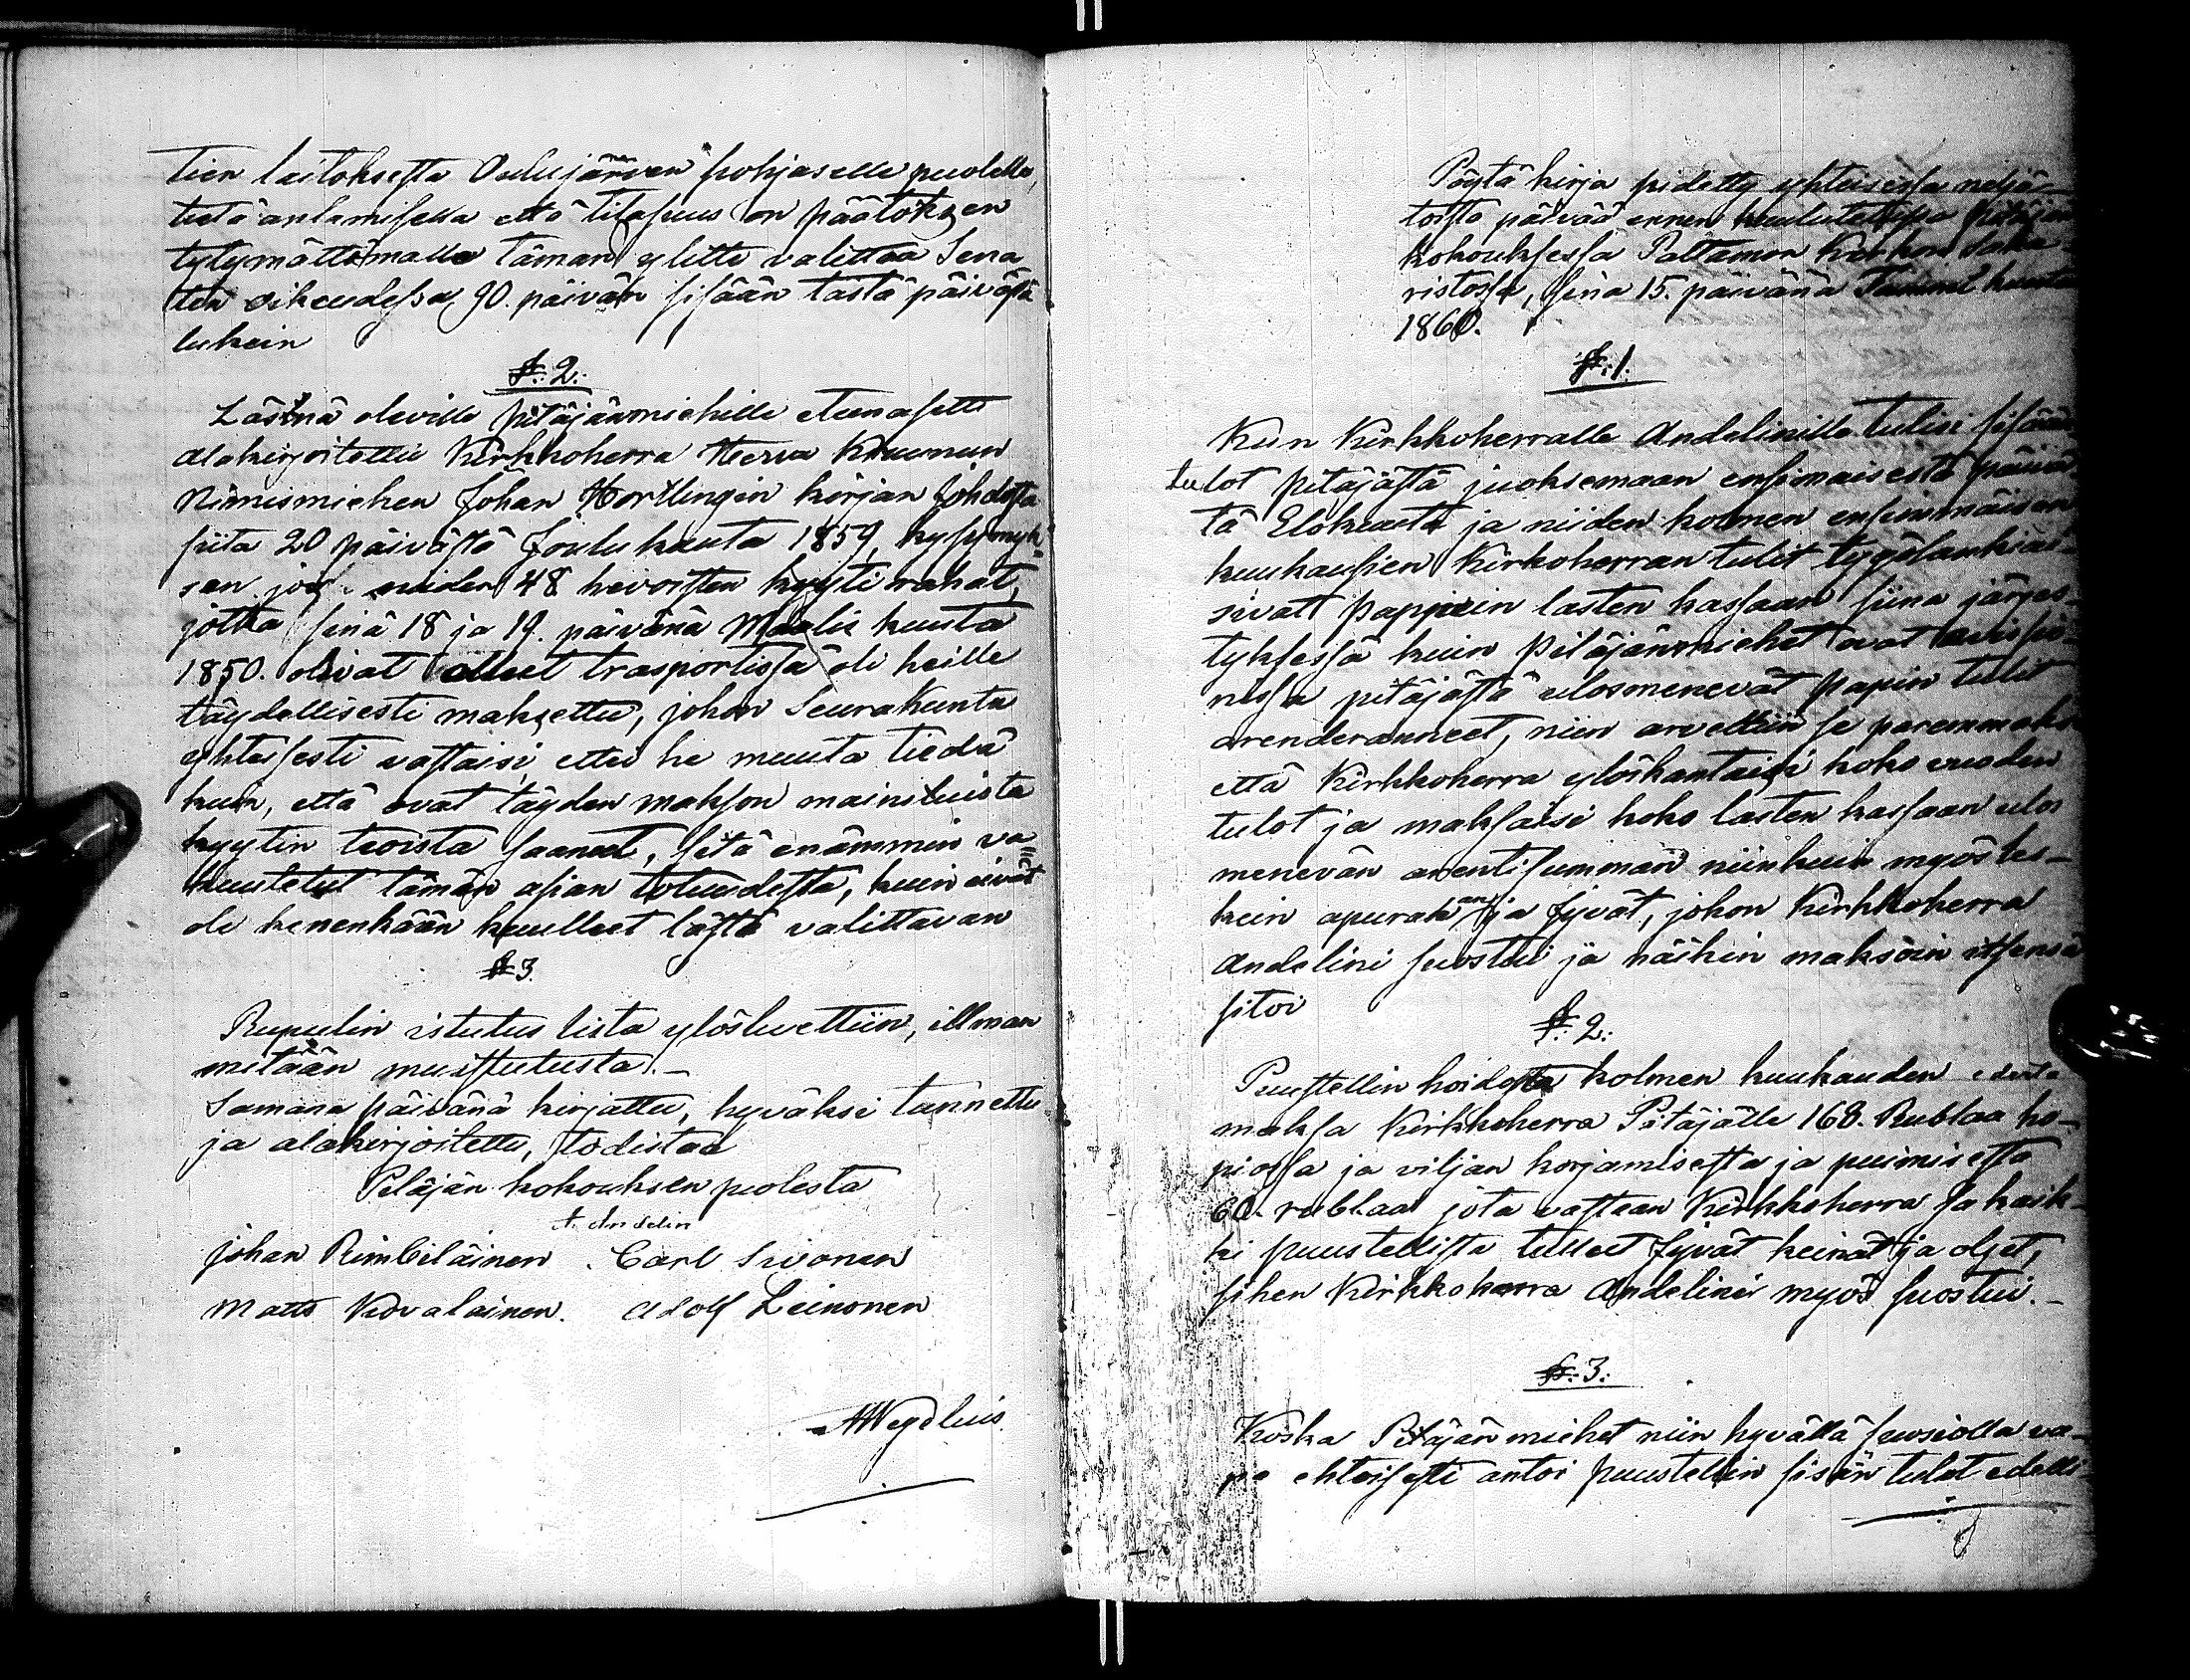 tien laitoksesta Oulujärven pohjaselle puolelle,
tietä antamisella että tilasuus on päätökzen
tytymättömälle täman ylitte valittaa Sena
ten oikeudessa, 90. päivän sisään tästä päivästä
lukein
§. 2.
Läsnä oleville pitäjänmiehille eteenasetti
alakirjoitettu Kirkkoherra Herra Kruunun
Nimismiehen Johan Hortlingin kirjan johdosta
siita 20 päivästä Joulukuuta 1859, kysymyk-
sen jos niiden 48 hevoisten kyyti rahat,
jotka sinä 18 ja 19. päivänä Maalis kuuta
1850. olivat olleet trasportissa oli heille
täydellisesti maksettu, johon Seurakunta
yhteisesti vastaisi ettei he muuta tiedä
kuin, että ovat täyden makson mainituista
kyytin teoista saaneet, sitä enämmin va
kuutetut tämän asian totuudesta, kuin eivät
ole kenenkään kuulleet tästä valittavan
§ 3.
Rupulin istutus lista ylösluettiin, illman
mitään muistutusta. -
Samana päivänä kirjattu, hyväksi tunnettu
ja alakirjoitettu, todistaa
Petäjän kokouksen puolesta
A. Andelin
Johan Rimbiläinen. Carl Sivonen
Matts Kovalainen. Adolf Leinonen
AWegelius
Pöytä kirja pidetty yhteisessa neljä-
toista päivää ennen kuulutetussa Pitäjän
kokouksessa Paltamon Kirkon Saka-
ristossa, sina 15. päivänä Tammi kuuta
1860.
§. 1.
Kun Kirkkoherralle Andelinille tulisi sisään
tulot pitäjästä juoksemaan ensimaisestä päiväs
tä Elokuuta ja niiden kolmen ensimmäisen
kuukausien Kirkoherran tulot työlankiai-
sivatt pappiein lasten kassaan siina järjes-
tyksessä kuin Pitäjänmiehet ovat
nissa pitäjästä ulosmenevät papin tulot
arenderanneet, niin arveltiin se paremmaksi
että Kirkkoherra ylöskantaisi koko vuoden
tulot ja maksaisi koko lasten kassaan ulos
menevän arentisumman niinkuin myös les-
kein apurahan ja jyvät, johon Kirkkoherra
Andelini suostui ja näihin maksoin itsensä
sitoi
§. 2.
Puustellin hoidosta kolmen kuukauden edestä
maksa Kirkkoherra Pitäjälle 168. Rublaa ho-
piossa ja viljan korjamisesta ja puimisesta
60. rublaa jota vastaan Kirkkoherra sa kaik-
ki puustellista tulleet jyvät heinät ja oljet,
sihen Kirkkoherra Andelini myös suostui. -
§. 3.
Koska Pitäjänmiehet niin hyvällä suosiolla va-
pa ehtoisesti antoi puustellin sisän tulot edelli